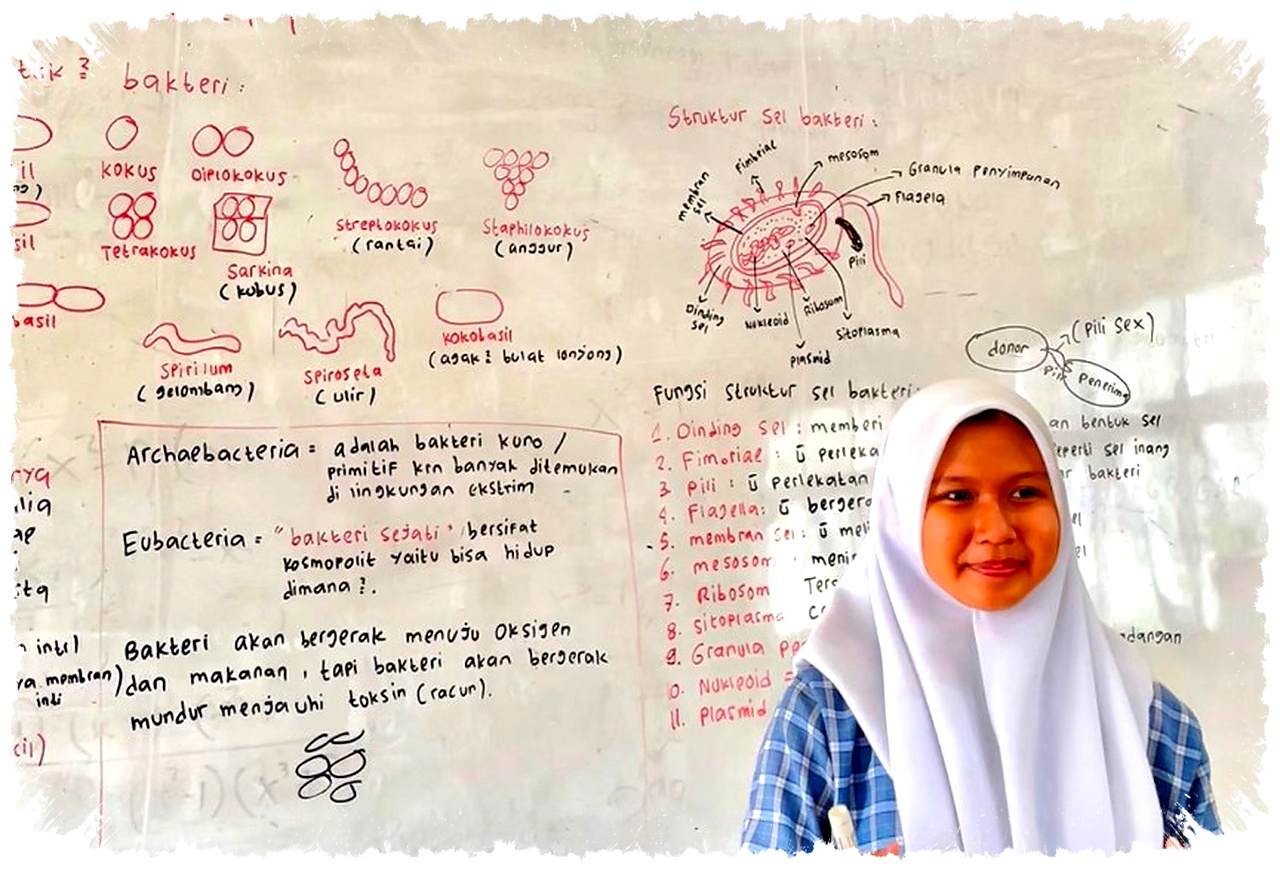 bakteri :
il
KOKUS
Diplokokus
Streptokokus
(rantai)
Staphilokokus
(anggur)
sil
Tetrakokus
Sarkina
(kubus)
basil
Spirilum
(gelombang)
Spiroseta
(ulir)
kokobasil
(agak² bulat lonjong)
Archaebacteria = adalah bakteri kuno /
primitif krn banyak ditemukan
di lingkungan ekstrim
Eubacteria = "bakteri sejati" bersifat
kosmopolit yaitu bisa hidup
dimana².
Bakteri akan bergerak menuju oksigen
dan makanan, tapi bakteri akan bergerak
mundur menjauhi toksin (racun).
nya
lia
ae
ita
inti)
ya membran)
inti
cil)
Struktur sel bakteri :
Fimbriae
mesosom
Granula Penyimpanan
Flagela
membran
sel
Pili
Dinding
sel
Nukleoid
Ribosom
Sitoplasma
plasmid
donor
(Pili Sex)
Pili
Penerima
Fungsi struktur sel bakteri :
1. Dinding sel : memberi an bentuk sel
2. Fimbriae : ū perleka seperti sel inang
3. Pili : ū perlekatan ar bakteri
4. Flagella : ū bergera
5. membran sel : ū mel el
6. mesosom : menin sel
7. Ribosom Ters
8. Sitoplasma C
9. Granula pe adangan
10. Nukleoid =
11. Plasmid